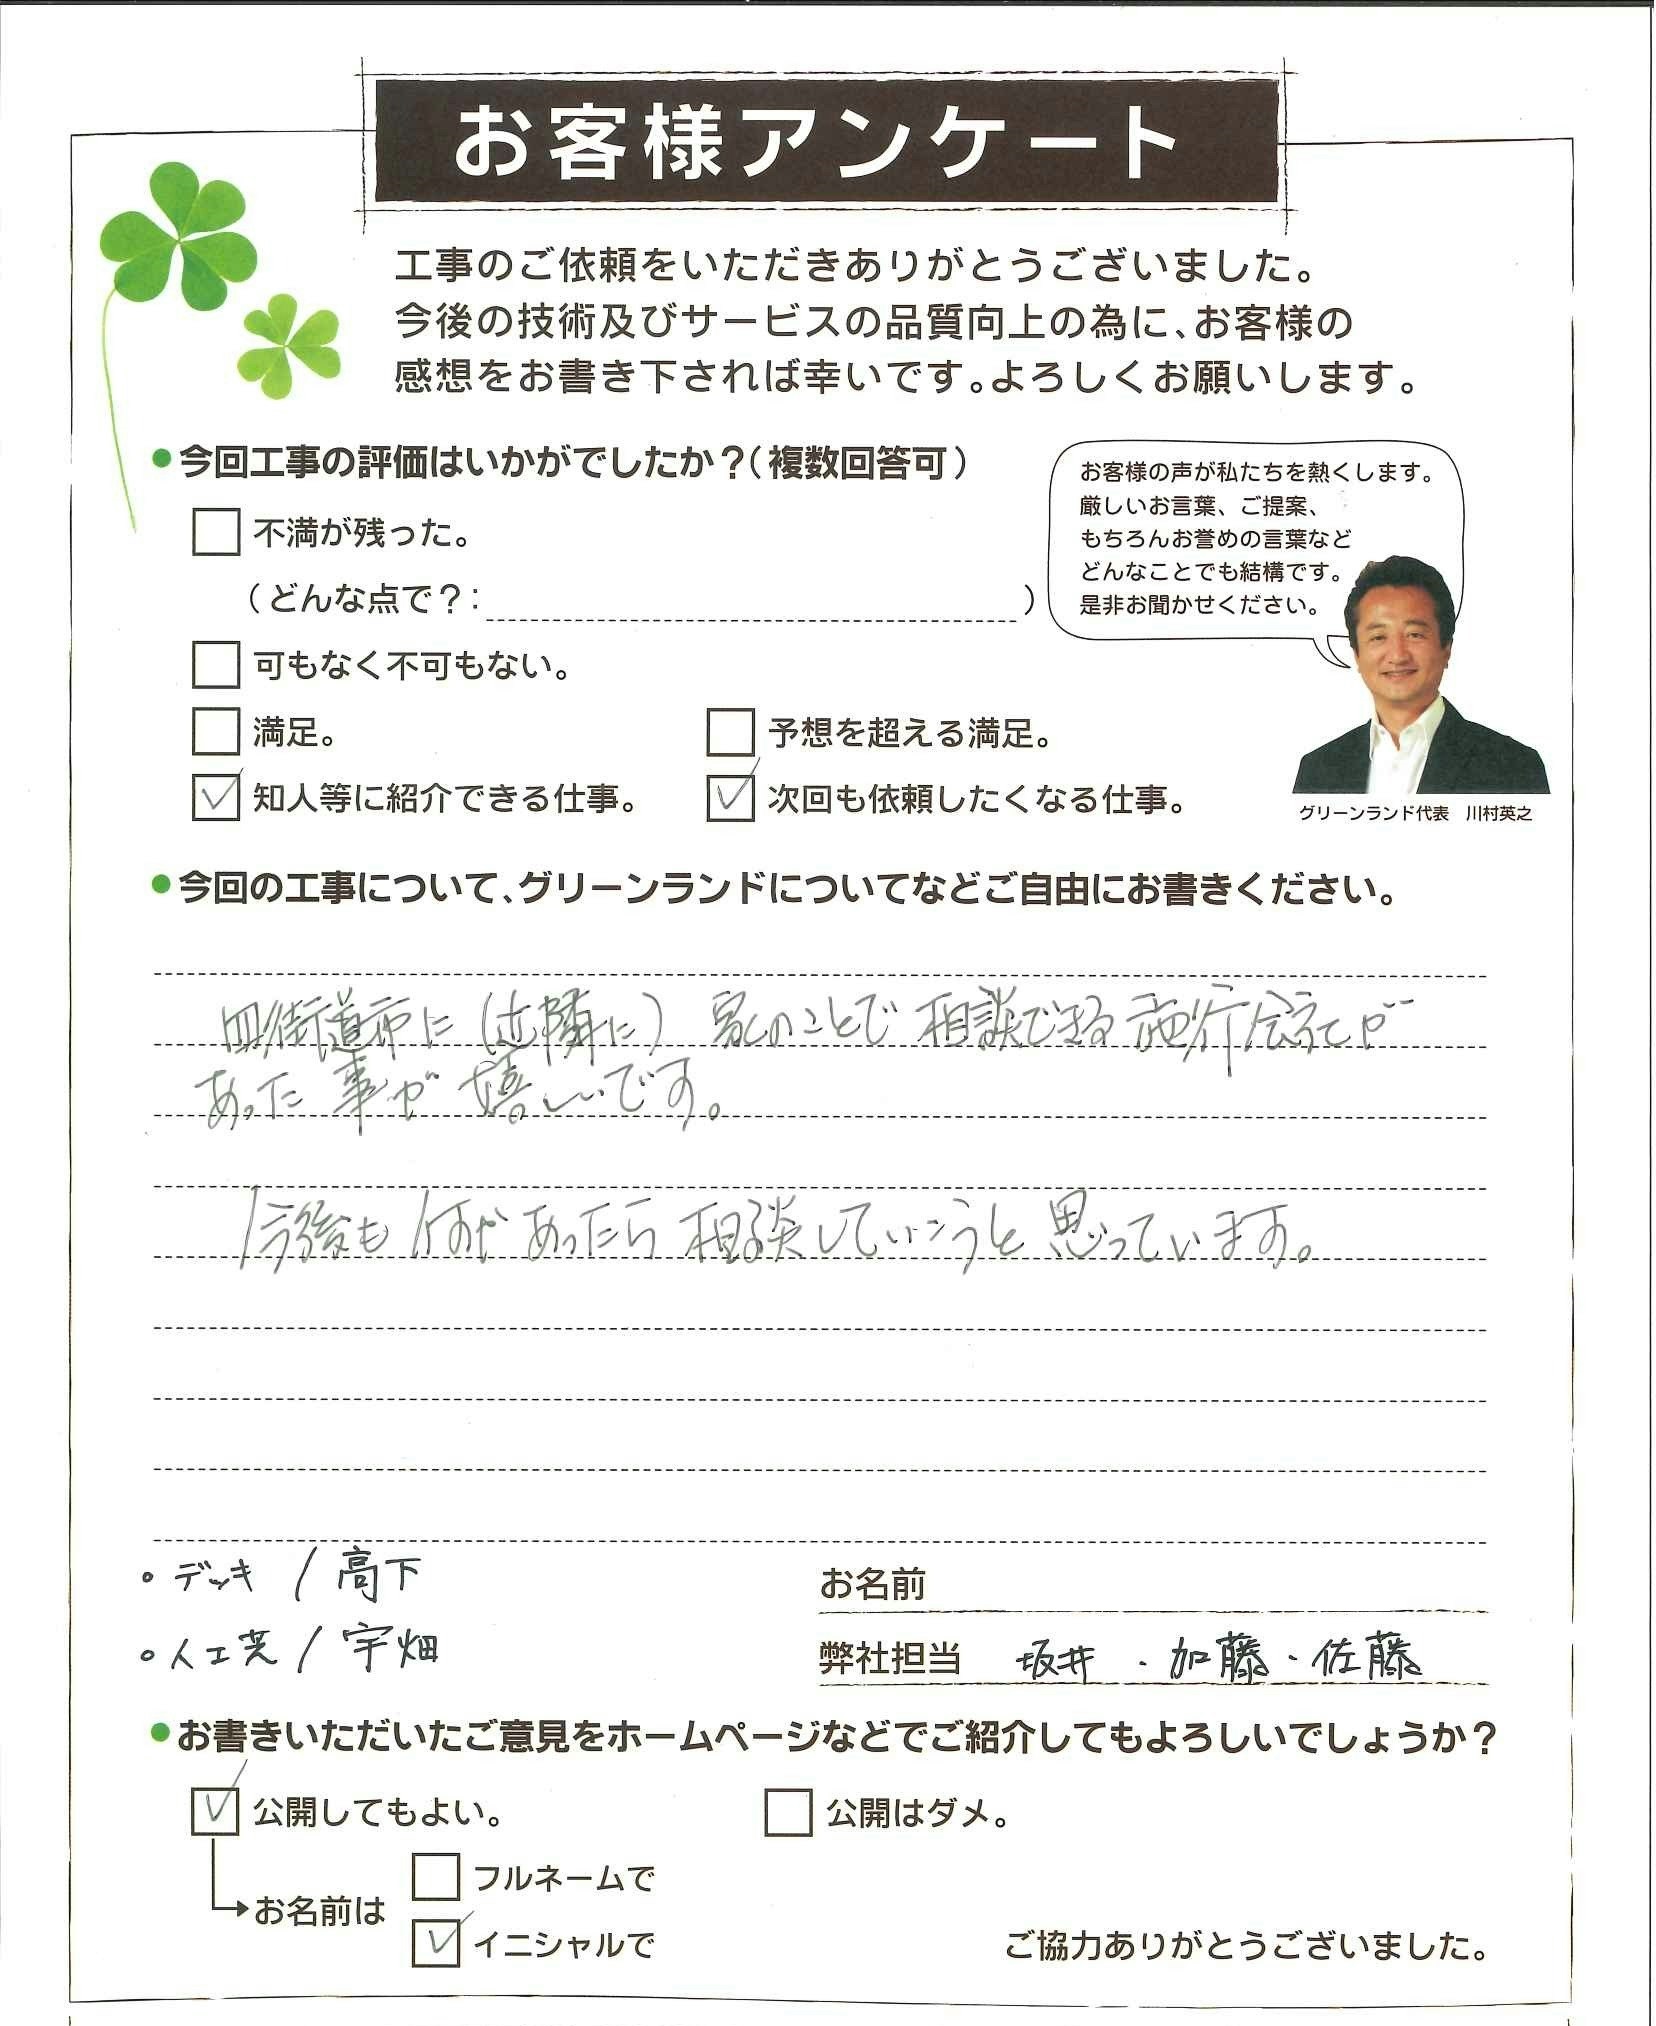 お客様アンケート
工事のご依頼をいただきありがとうございました。
今後の技術及びサービスの品質向上の為に、お客様の
感想をお書き下されば幸いです。よろしくお願いします。
●今回工事の評価はいかがでしたか？(複数回答可)
不満が残った。
(どんな点で？: )
可もなく不可もない。
満足。
予想を超える満足。
☑知人等に紹介できる仕事。
☑次回も依頼したくなる仕事。
お客様の声が私たちを熱くします。
厳しいお言葉、ご提案、
もちろんお誉めの言葉など
どんなことでも結構です。
是非お聞かせください。
グリーンランド代表 川村英之
●今回の工事について、グリーンランドについてなどご自由にお書きください。
四街道市に(近隣に) 家のことで相談できる施行会社が
あった事が嬉しいです。
今後も何かあったら相談していこうと思っています。
・デッキ / 高下
・人工芝 / 宇畑
お名前
弊社担当 坂井・加藤・佐藤
●お書きいただいたご意見をホームページなどでご紹介してもよろしいでしょうか？
☑公開してもよい。
公開はダメ。
お名前は
フルネームで
☑イニシャルで
ご協力ありがとうございました。